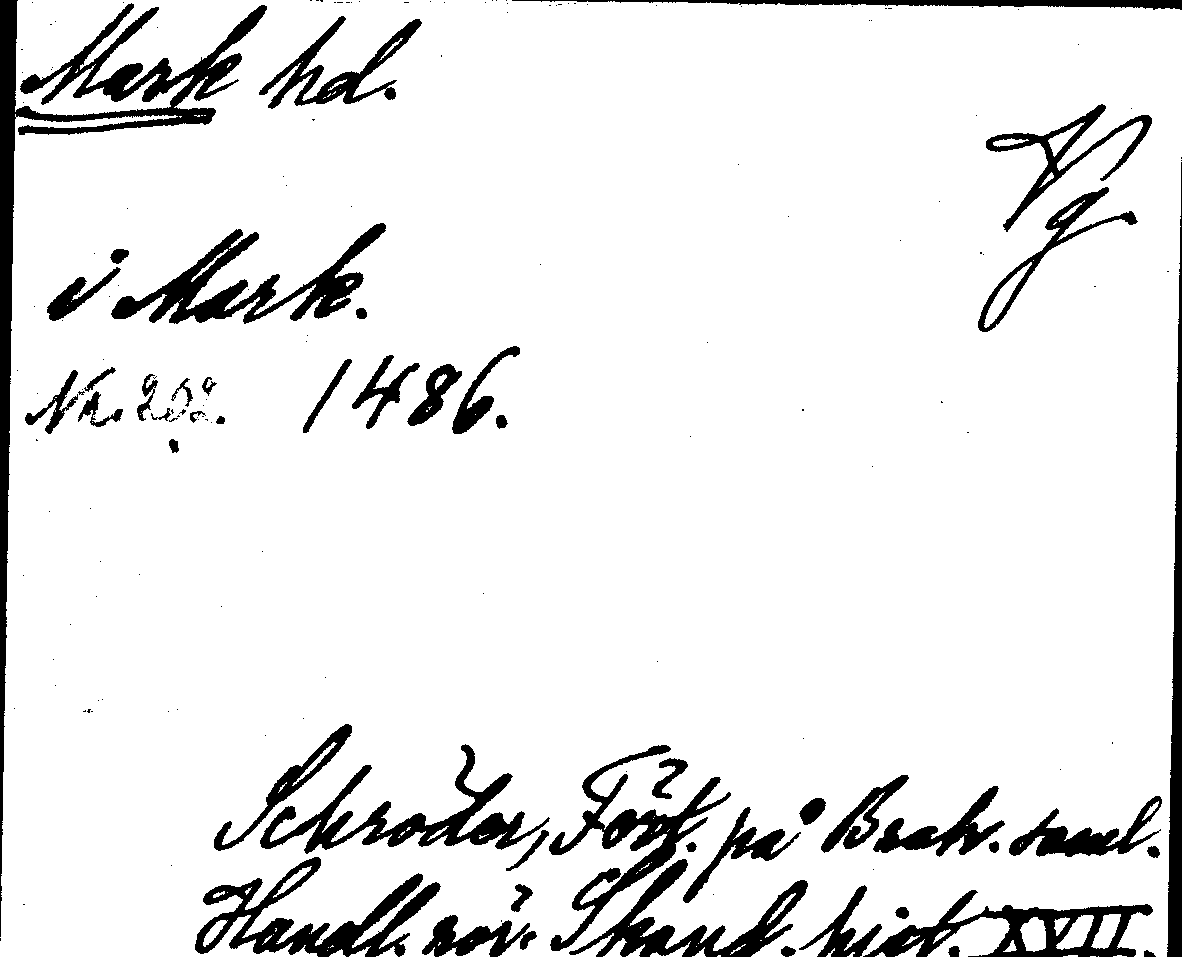 Mark hd.
Vg.
i Mark.
Nr. 202. 1486.
Schröder, Fört. på Brah. saml.
Handl. rör. Skand. hist. XVII.